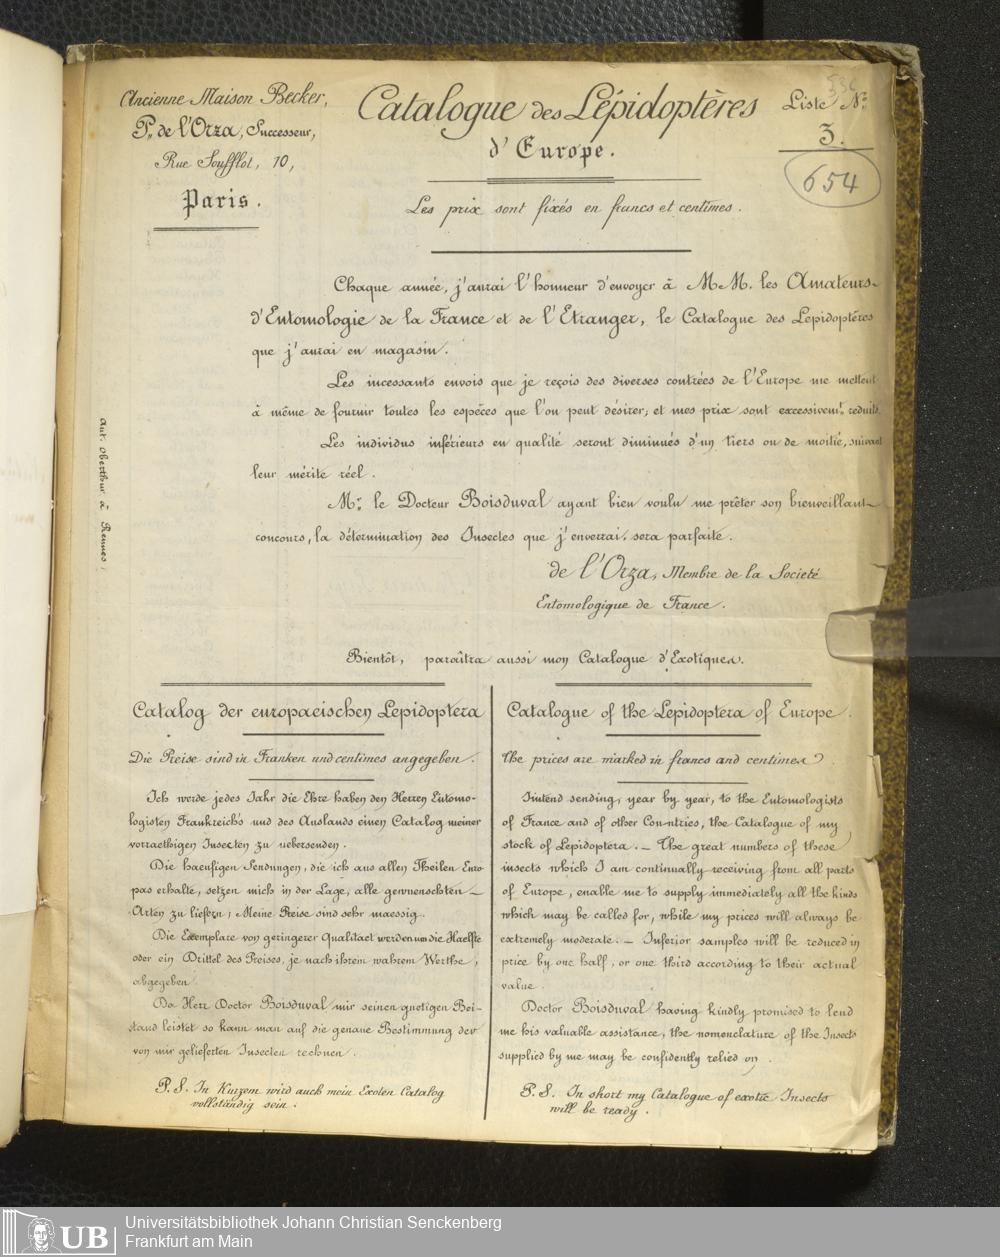 Ancienne Maison Becker,
P. de l'Orza, Successeur,
Rue Soufflot, 10,
Paris.
Catalogue des Lépidoptères
d'Europe.
Liste N°
3.
654
Les prix sont fixés en francs et centimes.
Chaque année, j'aurai l'honneur d'envoyer à MM. les Amateurs
d'Entomologie de la France et de l'Etranger, le Catalogue des Lepidoptères
que j'aurai en magasin.
Les incessants envois que je reçois des diverses contrées de l'Europe me mettent
à même de fournir toutes les espèces que l'on peut désirer; et mes prix sont excessivemt. reduits.
Les individus inférieurs en qualité seront diminués d'un tiers ou de moitié, suivant
leur mérite réel.
Mr. le Docteur Boisduval ayant bien voulu me prêter son bienveillant
concours, la détermination des Insectes que j'enverrai, sera parfaite.
de l'Orza, Membre de la Societé
Entomologique de France.
Bientôt, paraîtra aussi mon Catalogue d'Exotiques.
Ant. Oberthur à Rennes.
Catalog der europaeischen Lepidoptera
Die Preise sind in Franken und centimes angegeben.
Ich werde jedes Jahr die Ehre haben den Herren Entomo-
logisten Frankreichs und des Auslands einen Catalog meiner
vorraethigen Insecten zu uebersenden.
Die haeufigen Sendungen, die ich aus allen Theilen Euro
pas erhalte, setzen mich in der Lage, alle gewuenschten
Arten zu liefern; Meine Preise sind sehr maessig.
Die Exemplare von geringerer Qualitaet werden um die Haelfte
oder ein Drittel des Preises, je nach ihrem wahrem Werthe,
abgegeben.
Da Herr Doctor Boisduval mir seinen guetigen Bei-
stand leistet so kann man auf die genaue Bestimmung der
von mir gelieferten Insecten rechnen.
P. S. In Kurzem wird auch mein Exoten Catalog
vollständig sein.
Catalogue of the Lepidoptera of Europe.
The prices are marked in francs and centimes
I intend sending, year by year, to the Entomologists
of France and of other Countries, the Catalogue of my
stock of Lepidoptera. — The great numbers of these
insects which I am continually receiving from all parts
of Europe, enable me to supply immediately all the kinds
which may be called for, while my prices will always be
extremely moderate. — Inferior samples will be reduced in
price by one half, or one third according to their actual
value.
Doctor Boisduval having kindly promised to lend
me his valuable assistance, the nomenclature of the Insects
supplied by me may be confidently relied on.
P. S. In short my Catalogue of exotic Insects
will be ready.
UB
Universitätsbibliothek Johann Christian Senckenberg
Frankfurt am Main